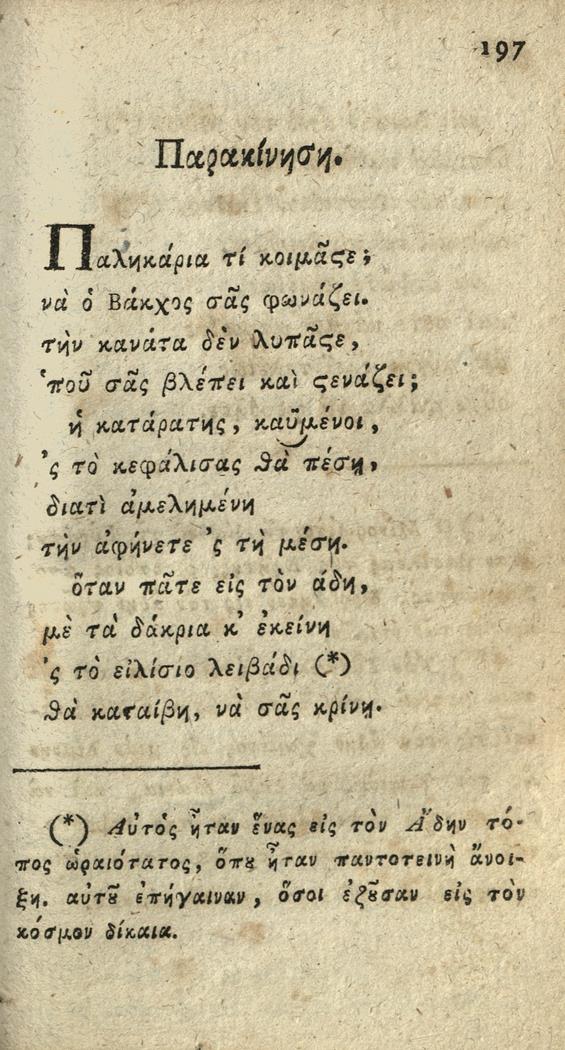 197
Παρακίνηση.
Παληκάρια τί κοιμᾶϛε;
νὰ ὁ Βάκχος σᾶς φωνάζει.
τὴν κανάτα δὲν λυπᾶϛε,
ʽποῦ σᾶς βλέπει καὶ ϛενάζει;
ἡ κατάρατης, καϋμένοι,
ʼς τὸ κεφάλισας θὰ πέσῃ,
διατὶ ἀμελημένη
τὴν ἀφήνετε ʼς τὴ μέση.
ὅταν πᾶτε εἰς τὸν άδη,
μὲ τὰ δάκρια κʼ ἐκείνη
ʼς τὸ εἰλίσιο λειβάδι (*)
θὰ καταίβη, νὰ σᾶς κρίνῃ.
(*) Αὐτὸς ἦταν ἕνας εἰς τὸν Ἄδην τό-
πος ὡραιότατος, ὅπȣ ἦταν παντοτεινὴ ἄνοι-
ξη. αυτȣ͂ ἐπήγαιναν, ὅσοι ἐζȣ͂σαν εἰς τὸν
κόσμον δίκαια.